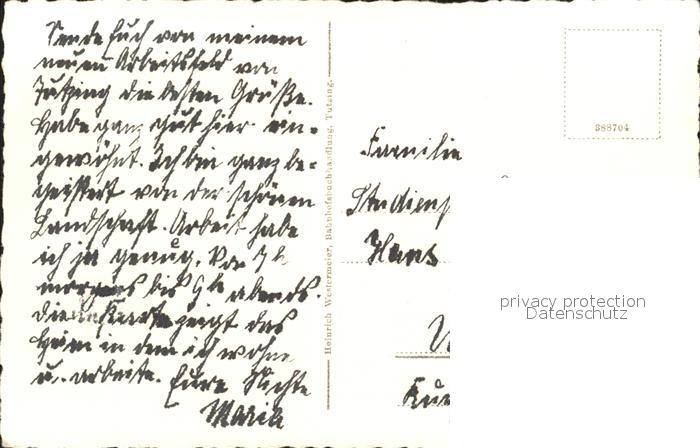 Sende Euch von meinem
neuen Arbeitsfeld von
Tutzing die besten Grüße.
Habe ganz gut hier ein-
gewöhnt. Ich bin ganz be-
geistert von der schönen
Landschaft. Arbeit habe
ich ja genug. Von 7 h
morgens bis 9 h abends.
Die Karte zeigt das
Heim in dem ich wohne
u. arbeite. Eure Nichte
Maria
Heinrich Westermeier, Bahnhofsbuchhandlung, Tutzing.
388704
Familie
Studienp
Hans
privacy protection
Datenschutz